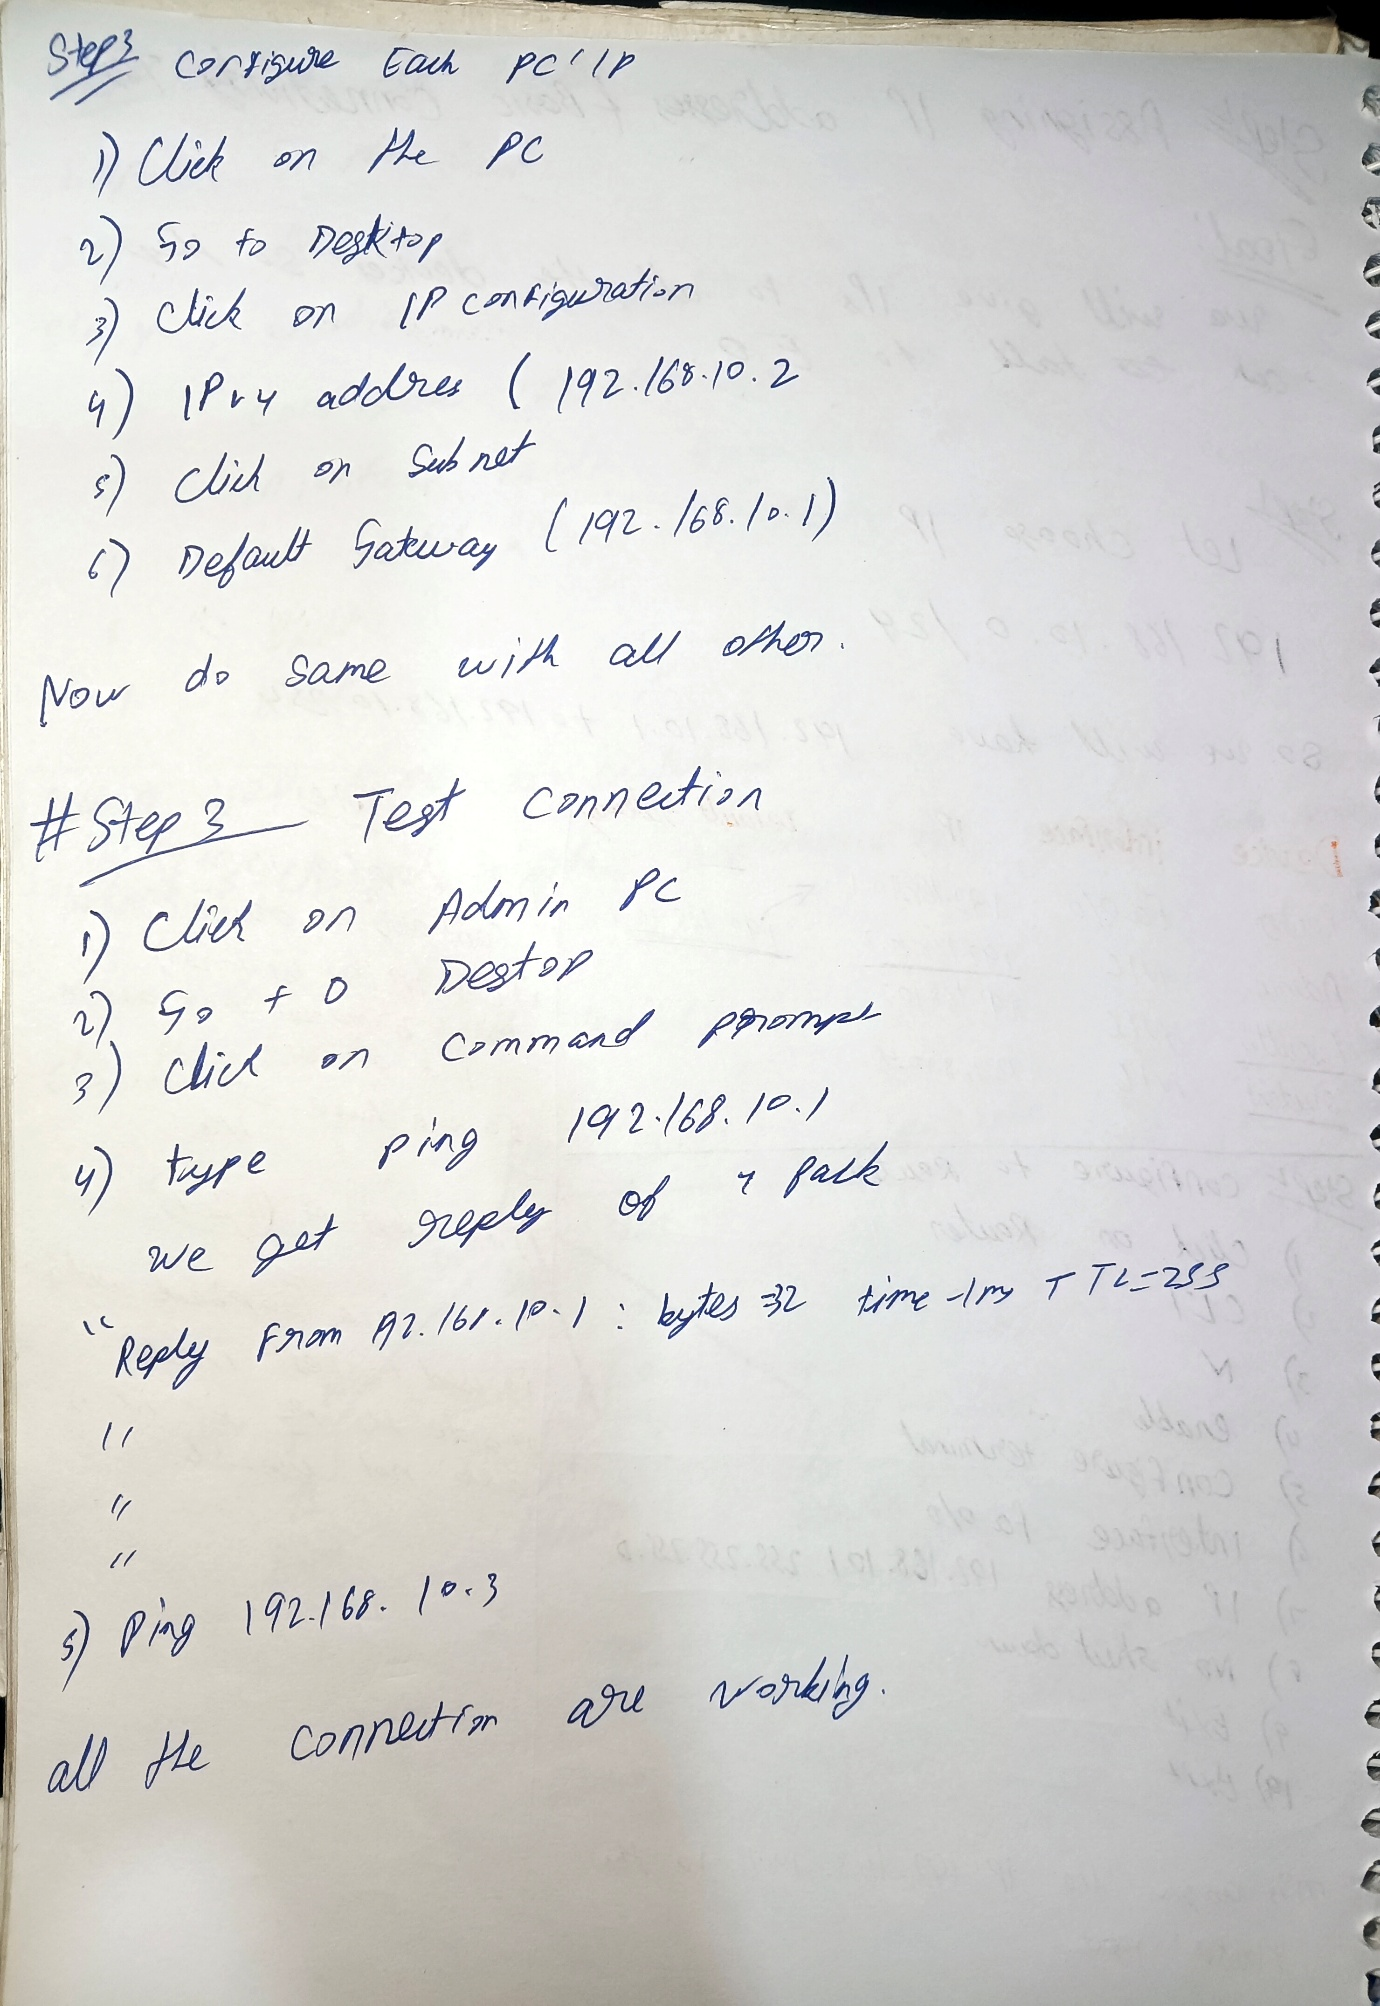 Step3 Configure Each PC' IP
1) Click on the PC
2) Go to Desktop
3) Click on IP configuration
4) IPv4 addres ( 192.168.10.2
5) Click on Subnet
6) Default Gateway (192.168.10.1)
Now do same with all other.
# Step 3 Test Connection
1) Click on Admin PC
2) Go to Destop
3) Click on Command prompt
4) type ping 192.168.10.1
we get reply of 4 pack
"Reply From 192.168.10.1 : bytes=32 time-1ms TTL=255
"
"
"
5) Ping 192.168.10.3
all the connection are working.